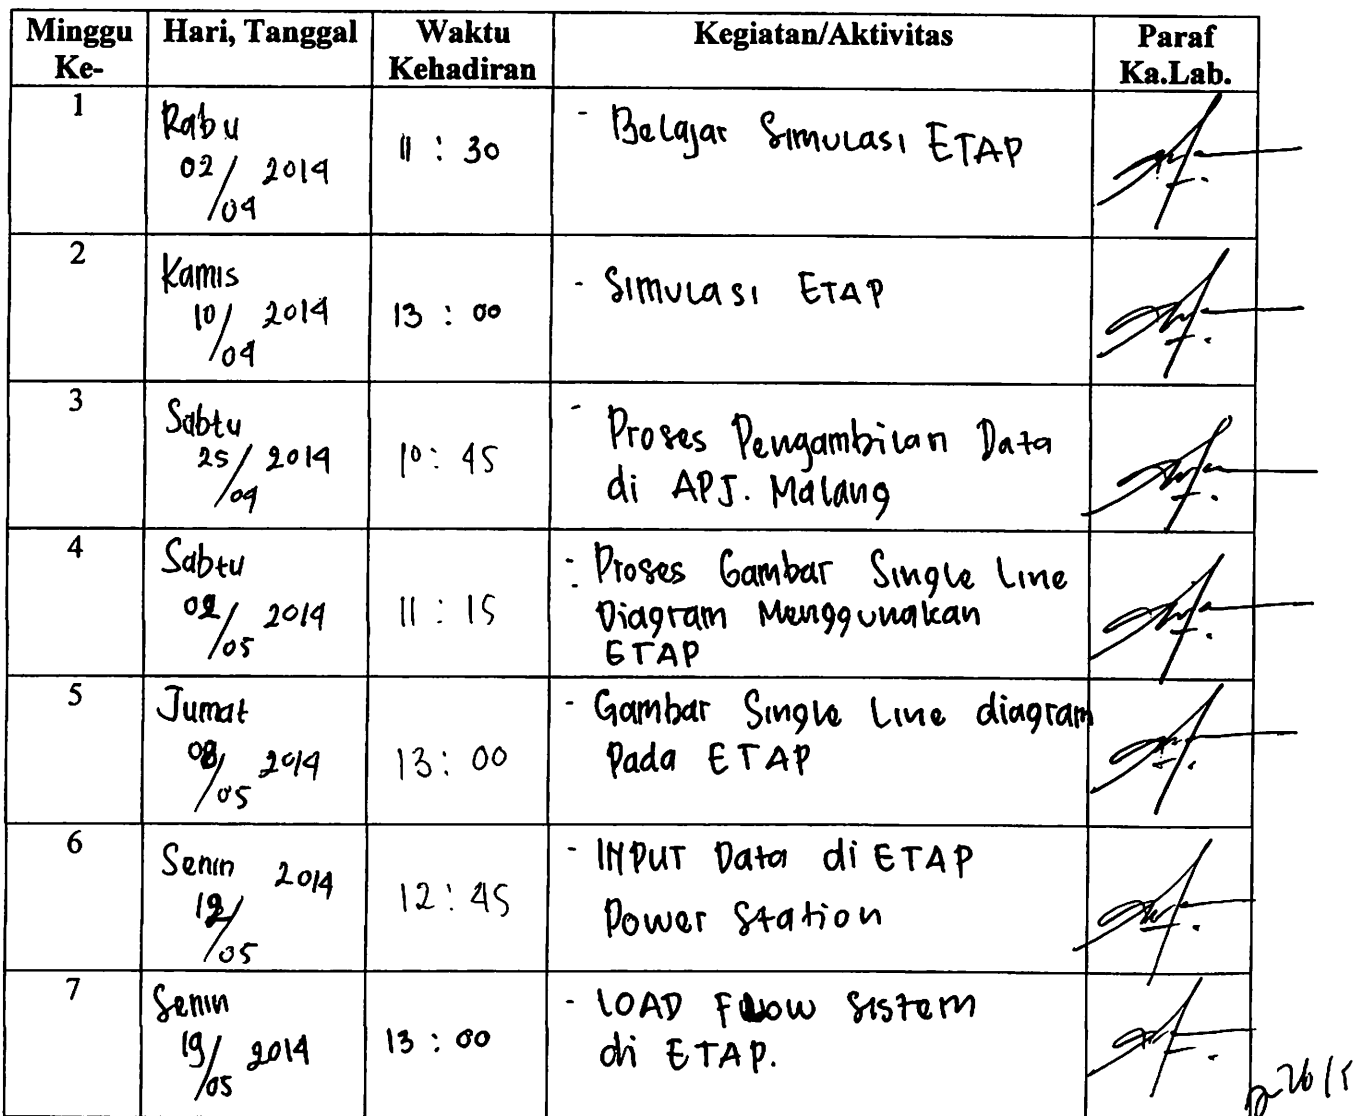 Minggu Ke- Hari, Tanggal Waktu Kehadiran Kegiatan/Aktivitas Paraf Ka.Lab.
1
Rabu
02/04 2014
11 : 30
- Belajar Simulasi ETAP
2
Kamis
10/04 2014
13 : 00
- Simulasi ETAP
3
Sabtu
25/04 2014
10 : 45
- Proses Pengambilan Data
di APJ. Malang
4
Sabtu
02/05 2014
11 : 15
- Proses Gambar Single Line
Diagram Menggunakan
ETAP
5
Jumat
08/05 2014
13 : 00
- Gambar Single Line diagram
Pada ETAP
6
Senin 2014
12/05
12 : 45
- INPUT Data di ETAP
Power Station
7
Senin
19/05 2014
13 : 00
- LOAD Flow Sistem
di ETAP.